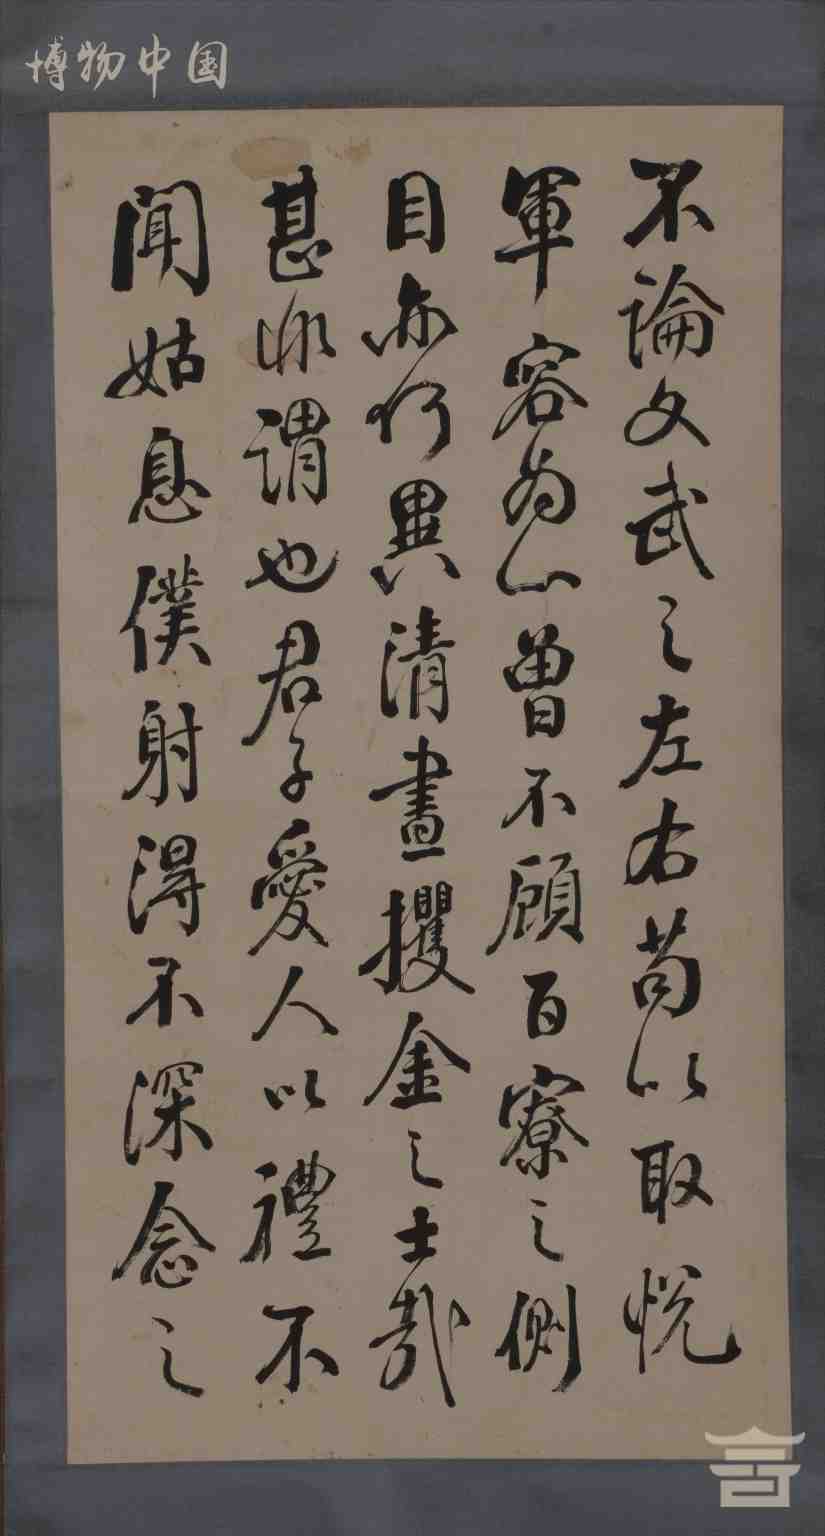 博物中国
不論文武之左右苟以取悅
軍容為心曾不顧百寮之側
目亦何異清晝攫金之士哉
甚非謂也君子愛人以禮不
聞姑息僕射得不深念之